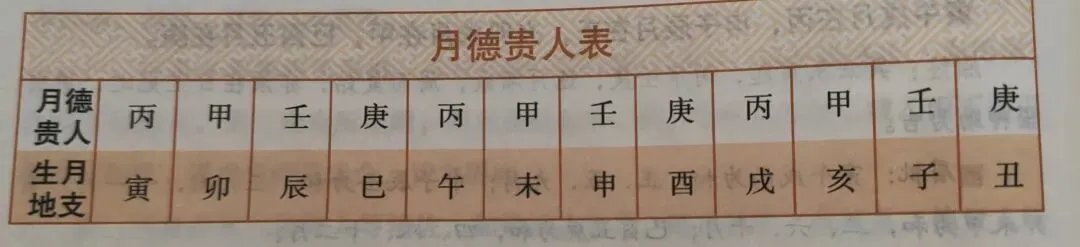 月德贵人表
月德贵人 丙 甲 壬 庚 丙 甲 壬 庚 丙 甲 壬 庚
生月地支 寅 卯 辰 巳 午 未 申 酉 戌 亥 子 丑